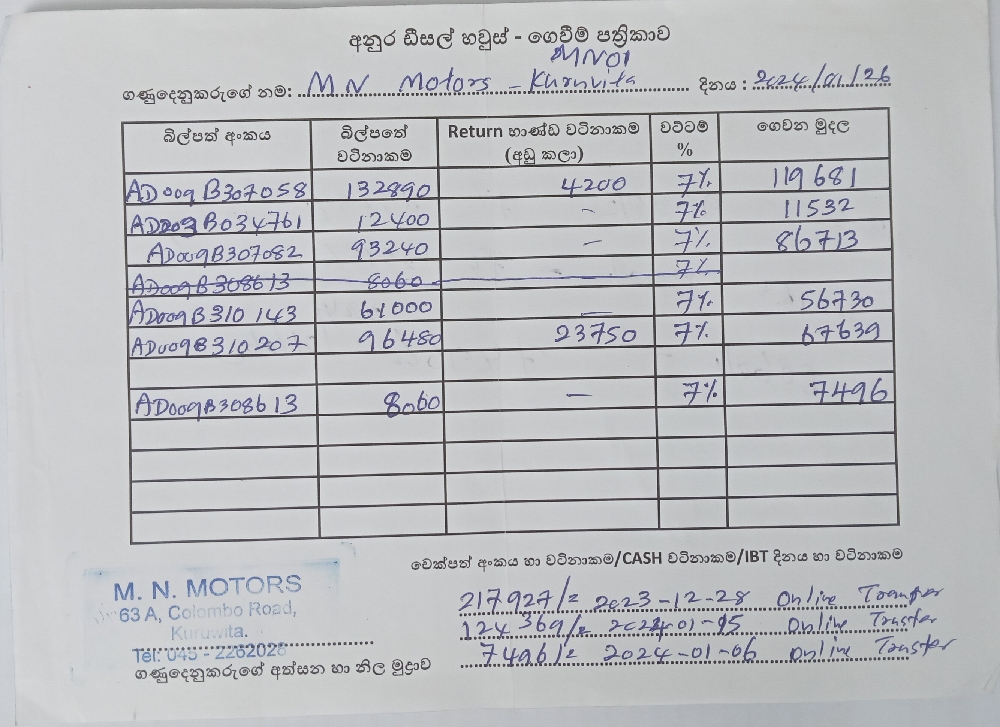 අනුර ඩීසල් හවුස් - ගෙවීම් පත්‍රිකාව
MN01
ගණුදෙනුකරුගේ නම: M N Motors - Kuruvita දිනය : 2024/01/26
බිල්පත් අංකය බිල්පතේ වටිනාකම Return භාණ්ඩ වටිනාකම (අඩු කලා) වට්ටම් % ගෙවන මුදල
AD009B307058 132890 4200 7% 119681
AD009B034761 12400 - 7% 11532
AD009B307082 93240 - 7% 86713
AD009B308613 8060 7%
AD009B310143 61000 - 7% 56730
AD009B310207 96480 23750 7% 67639
AD009B308613 8060 - 7% 7496
චෙක්පත් අංකය හා වටිනාකම/CASH වටිනාකම/IBT දිනය හා වටිනාකම
M. N. MOTORS
63 A, Colombo Road,
Kuruwita.
Tel: 045 - 2262026
217927/= 2023-12-28 Online Transfer
124369/= 2024-01-05 Online Transfer
7496/= 2024-01-06 Online Transfer
ගණුදෙනුකරුගේ අත්සන හා නිල මුද්‍රාව